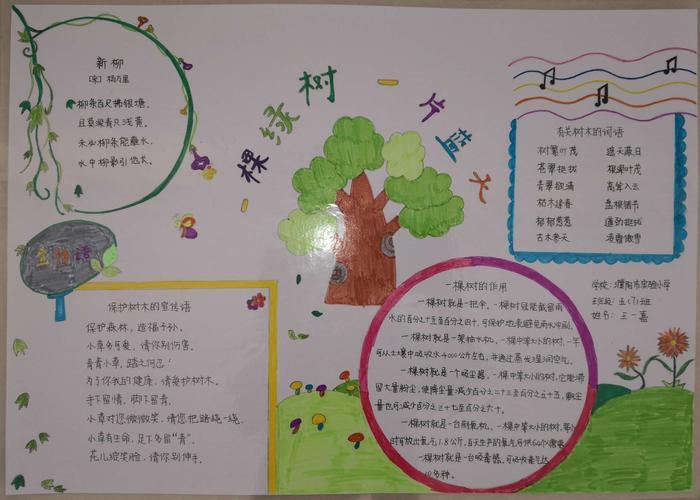 新柳
[宋] 杨万里
柳条百尺拂银塘,
且莫深青只浅黄。
未必柳条能蘸水,
水中柳影引他长。
一棵绿树 一片蓝天
有关树木的词语
树繁叶茂 遮天蔽日
苍翠挺拔 根深叶茂
青翠欲滴 高耸入云
枯木逢春 盘根错节
郁郁葱葱 遒劲挺拔
古木参天 凌霜傲雪
学校:濮阳市实验小学
班级:五(7)班
姓名:王一嘉
宣传语
保护树木的宣传语
保护森林,造福子孙。
小草多可爱,请你别伤害。
青青小草,踏之何忍!
为了你我的健康,请爱护树木。
手下留情,脚下留青。
小草对您微微笑,请您把路绕一绕。
小草有生命,足下多留“青”。
花儿绽笑脸,请你别伸手。
一棵树的作用
一棵树就是一把伞。一棵树就能截留雨
水的百分之十五至百分之四十,可保护地表避免雨水冲刷。
一棵树就是一架抽水机。一棵中等大小的树,一年
可从土壤中吸收水4000公斤左右,并通过蒸发湿润空气。
一棵树就是一个吸尘器。一棵中等大小的树,它能滞
留大量粉尘,使降尘量减少百分之二十三至百分之五十,飘尘
量也可减少百分之三十七至百分之六十。
一棵树就是一台制氧机。一棵中等大小的树,每小
时可放出氧气1.8公斤,白天生产的氧气可供64个人
一棵树就是一台吸毒器。可吸收毒气达
10多种。